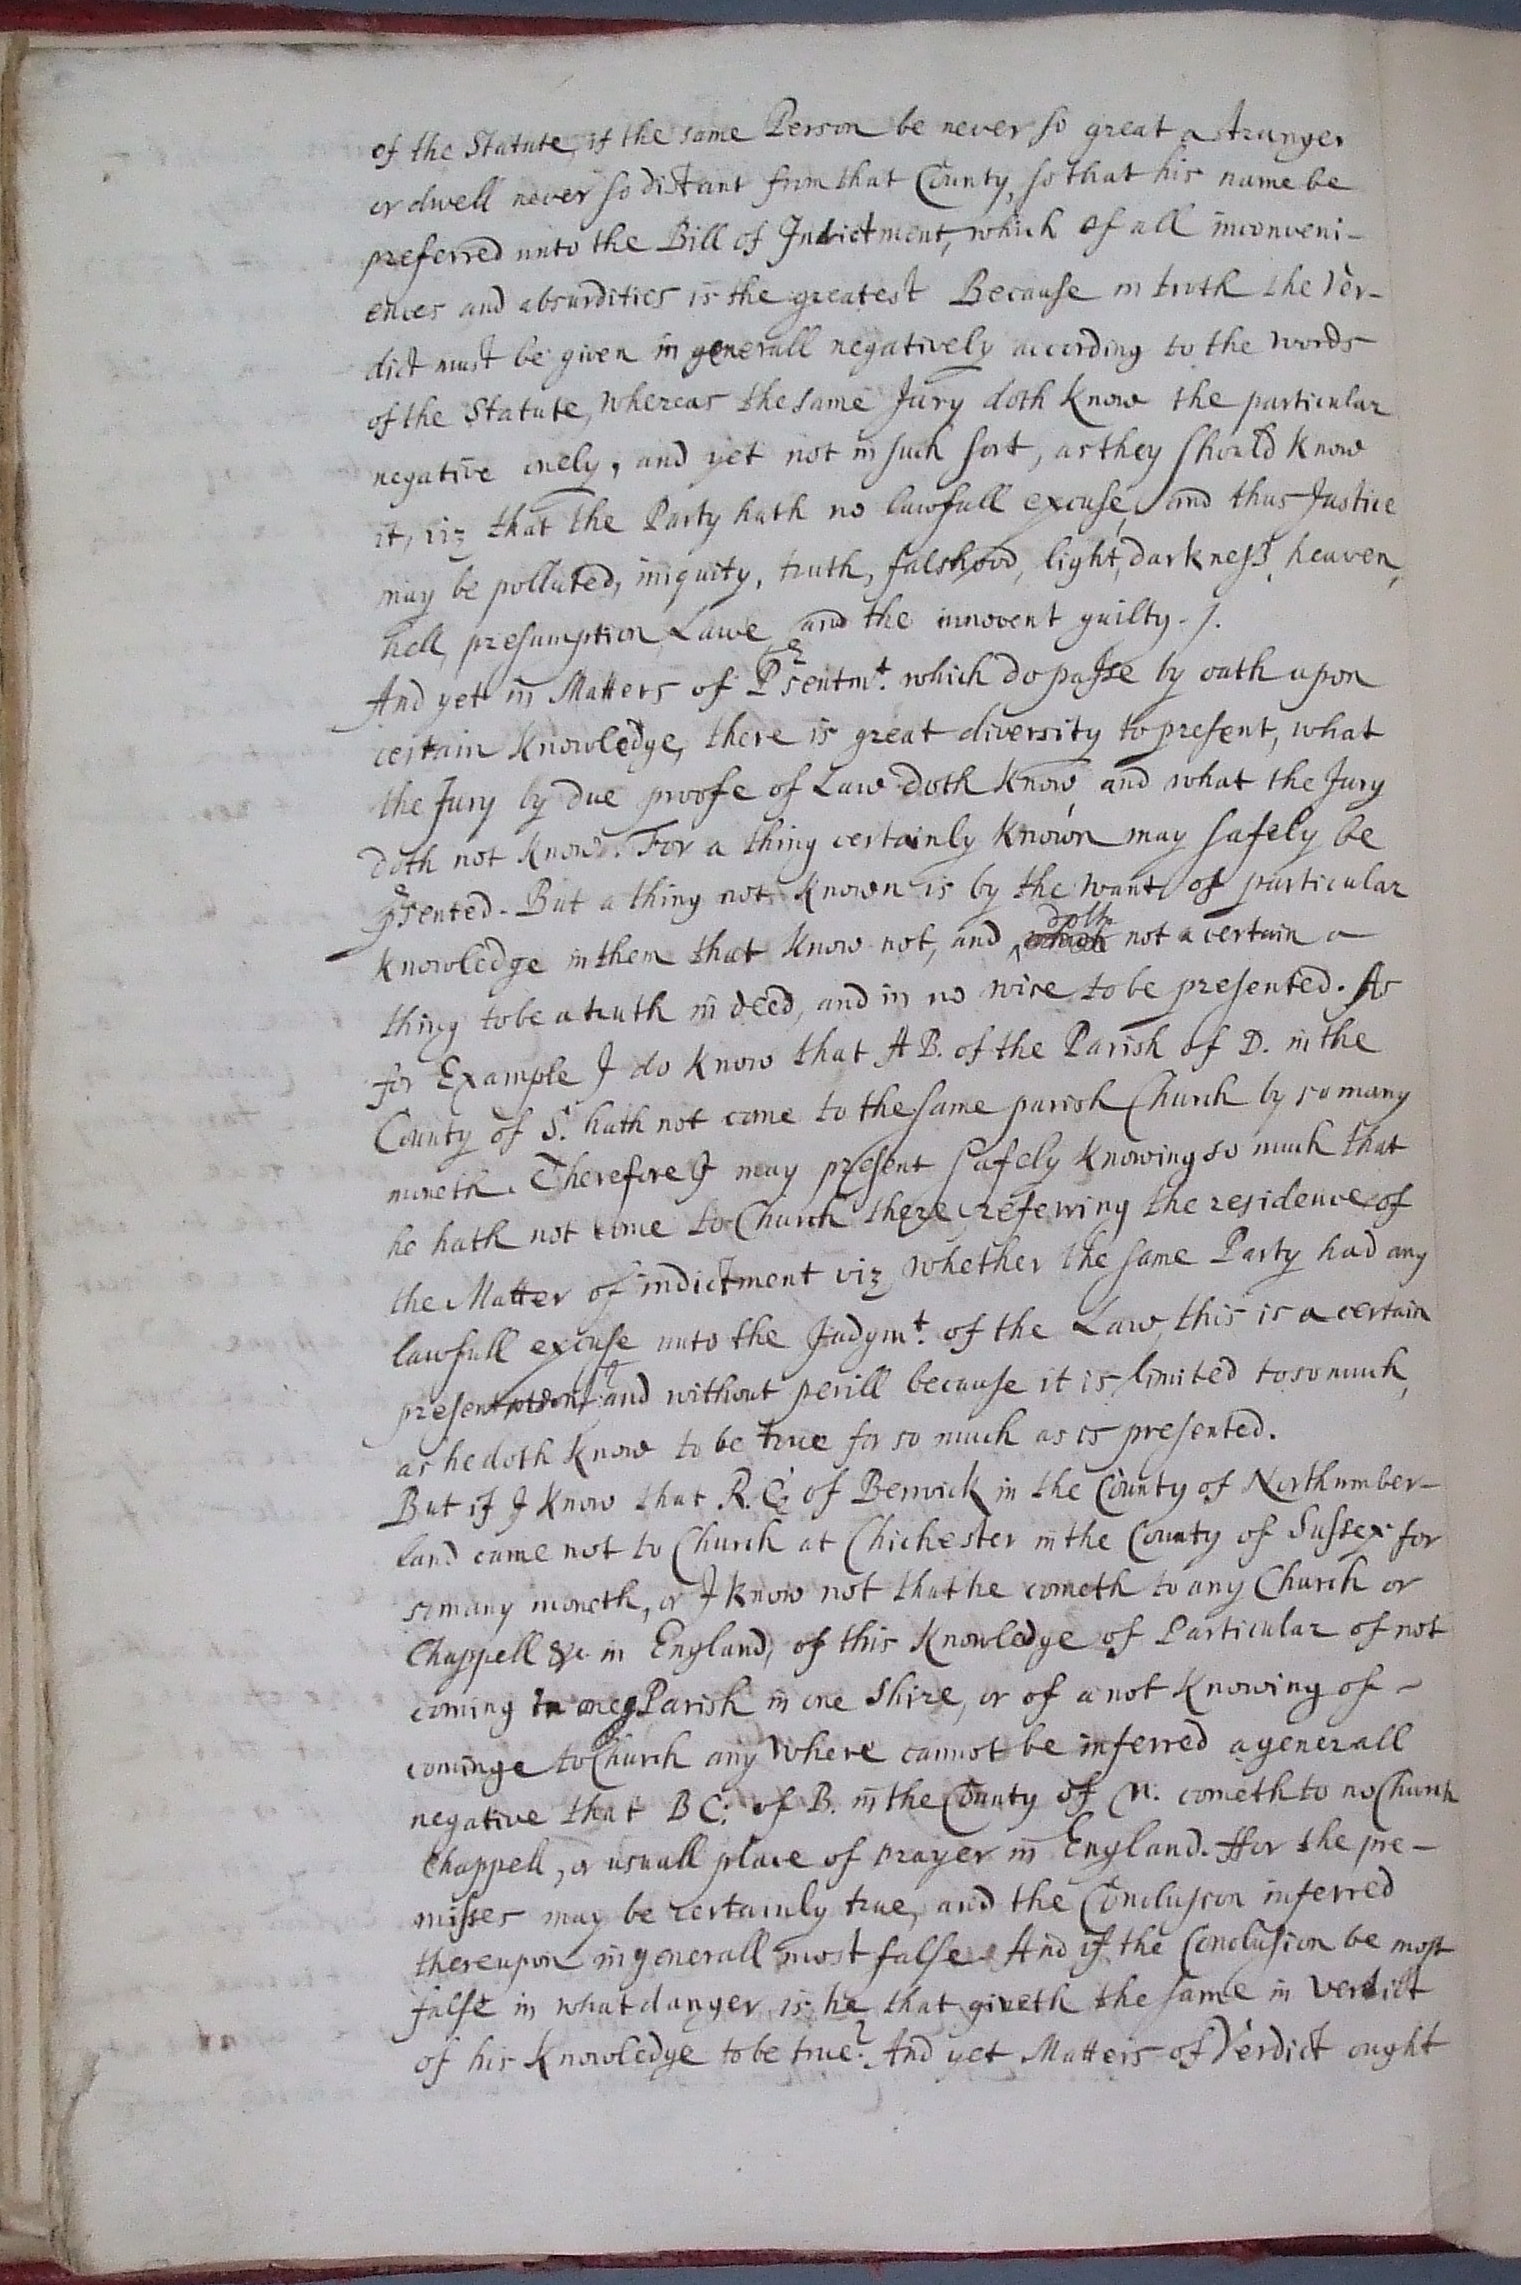 of the Statute, if the same Person be never so great a stranger
or dwell never so distant from that County, so that his name be
preferred unto the Bill of Indictment, which of all inconveni-
ences and absurdities is the greatest Because in truth the Ver-
dict must be given in generall negatively according to the words
of the Statute, whereas the same Jury doth know the particular
negative onely, and yet not in such sort, as they should know
it, viz that the Party hath no lawfull excuse, and thus Justice
may be polluted, iniquity, truth, falshood, light, darkness, heaven,
hell, presumption, Lawe, and the innocent guilty. /.
And yet in Matters of Psentmt. which do passe by oath upon
certain knowledge, there is great diversity to present, what
the Jury by due proofe of Law doth know, and what the Jury
doth not know. For a thing certainly known may safely be
psented. But a thing not known is by the want of particular
knowledge in them that know not, and doth not a certain a
thing to be a truth in deed, and in no wise to be presented. As
for Example I do know that A B. of the Parish of D. in the
County of S. hath not come to the same parish Church by so many
moneth. Therefore I may present safely knowing so much that
he hath not come to Church there, referring the residence of
the Matter of indictment viz whether the same Party had any
lawfull excuse unto the Judgmt. of the Law, this is a certain
present and without perill because it is limited to so much,
as he doth know to be true for so much as is presented.
But if I know that R. C. of Berwick in the County of Northumber-
land came not to Church at Chichester in the County of Sussex for
so many moneth, or I know not that he cometh to any Church or
Chappell &c. in England, of this knowledge of Particular of not
coming to one Parish in one Shire, or of a not knowing of -
cominge to Church any where cannot be inferred a generall
negative that B C. of B. in the County of N. cometh to no Church
Chappell, or usuall place of prayer in England. Ffor the pre-
misses may be certainly true, and the Conclusion inferred
thereupon in generall most false. And if the Conclusion be most
false in what danger is he that giveth the same in verdict
of his knowledge to be true? And yet Matters of Verdict ought